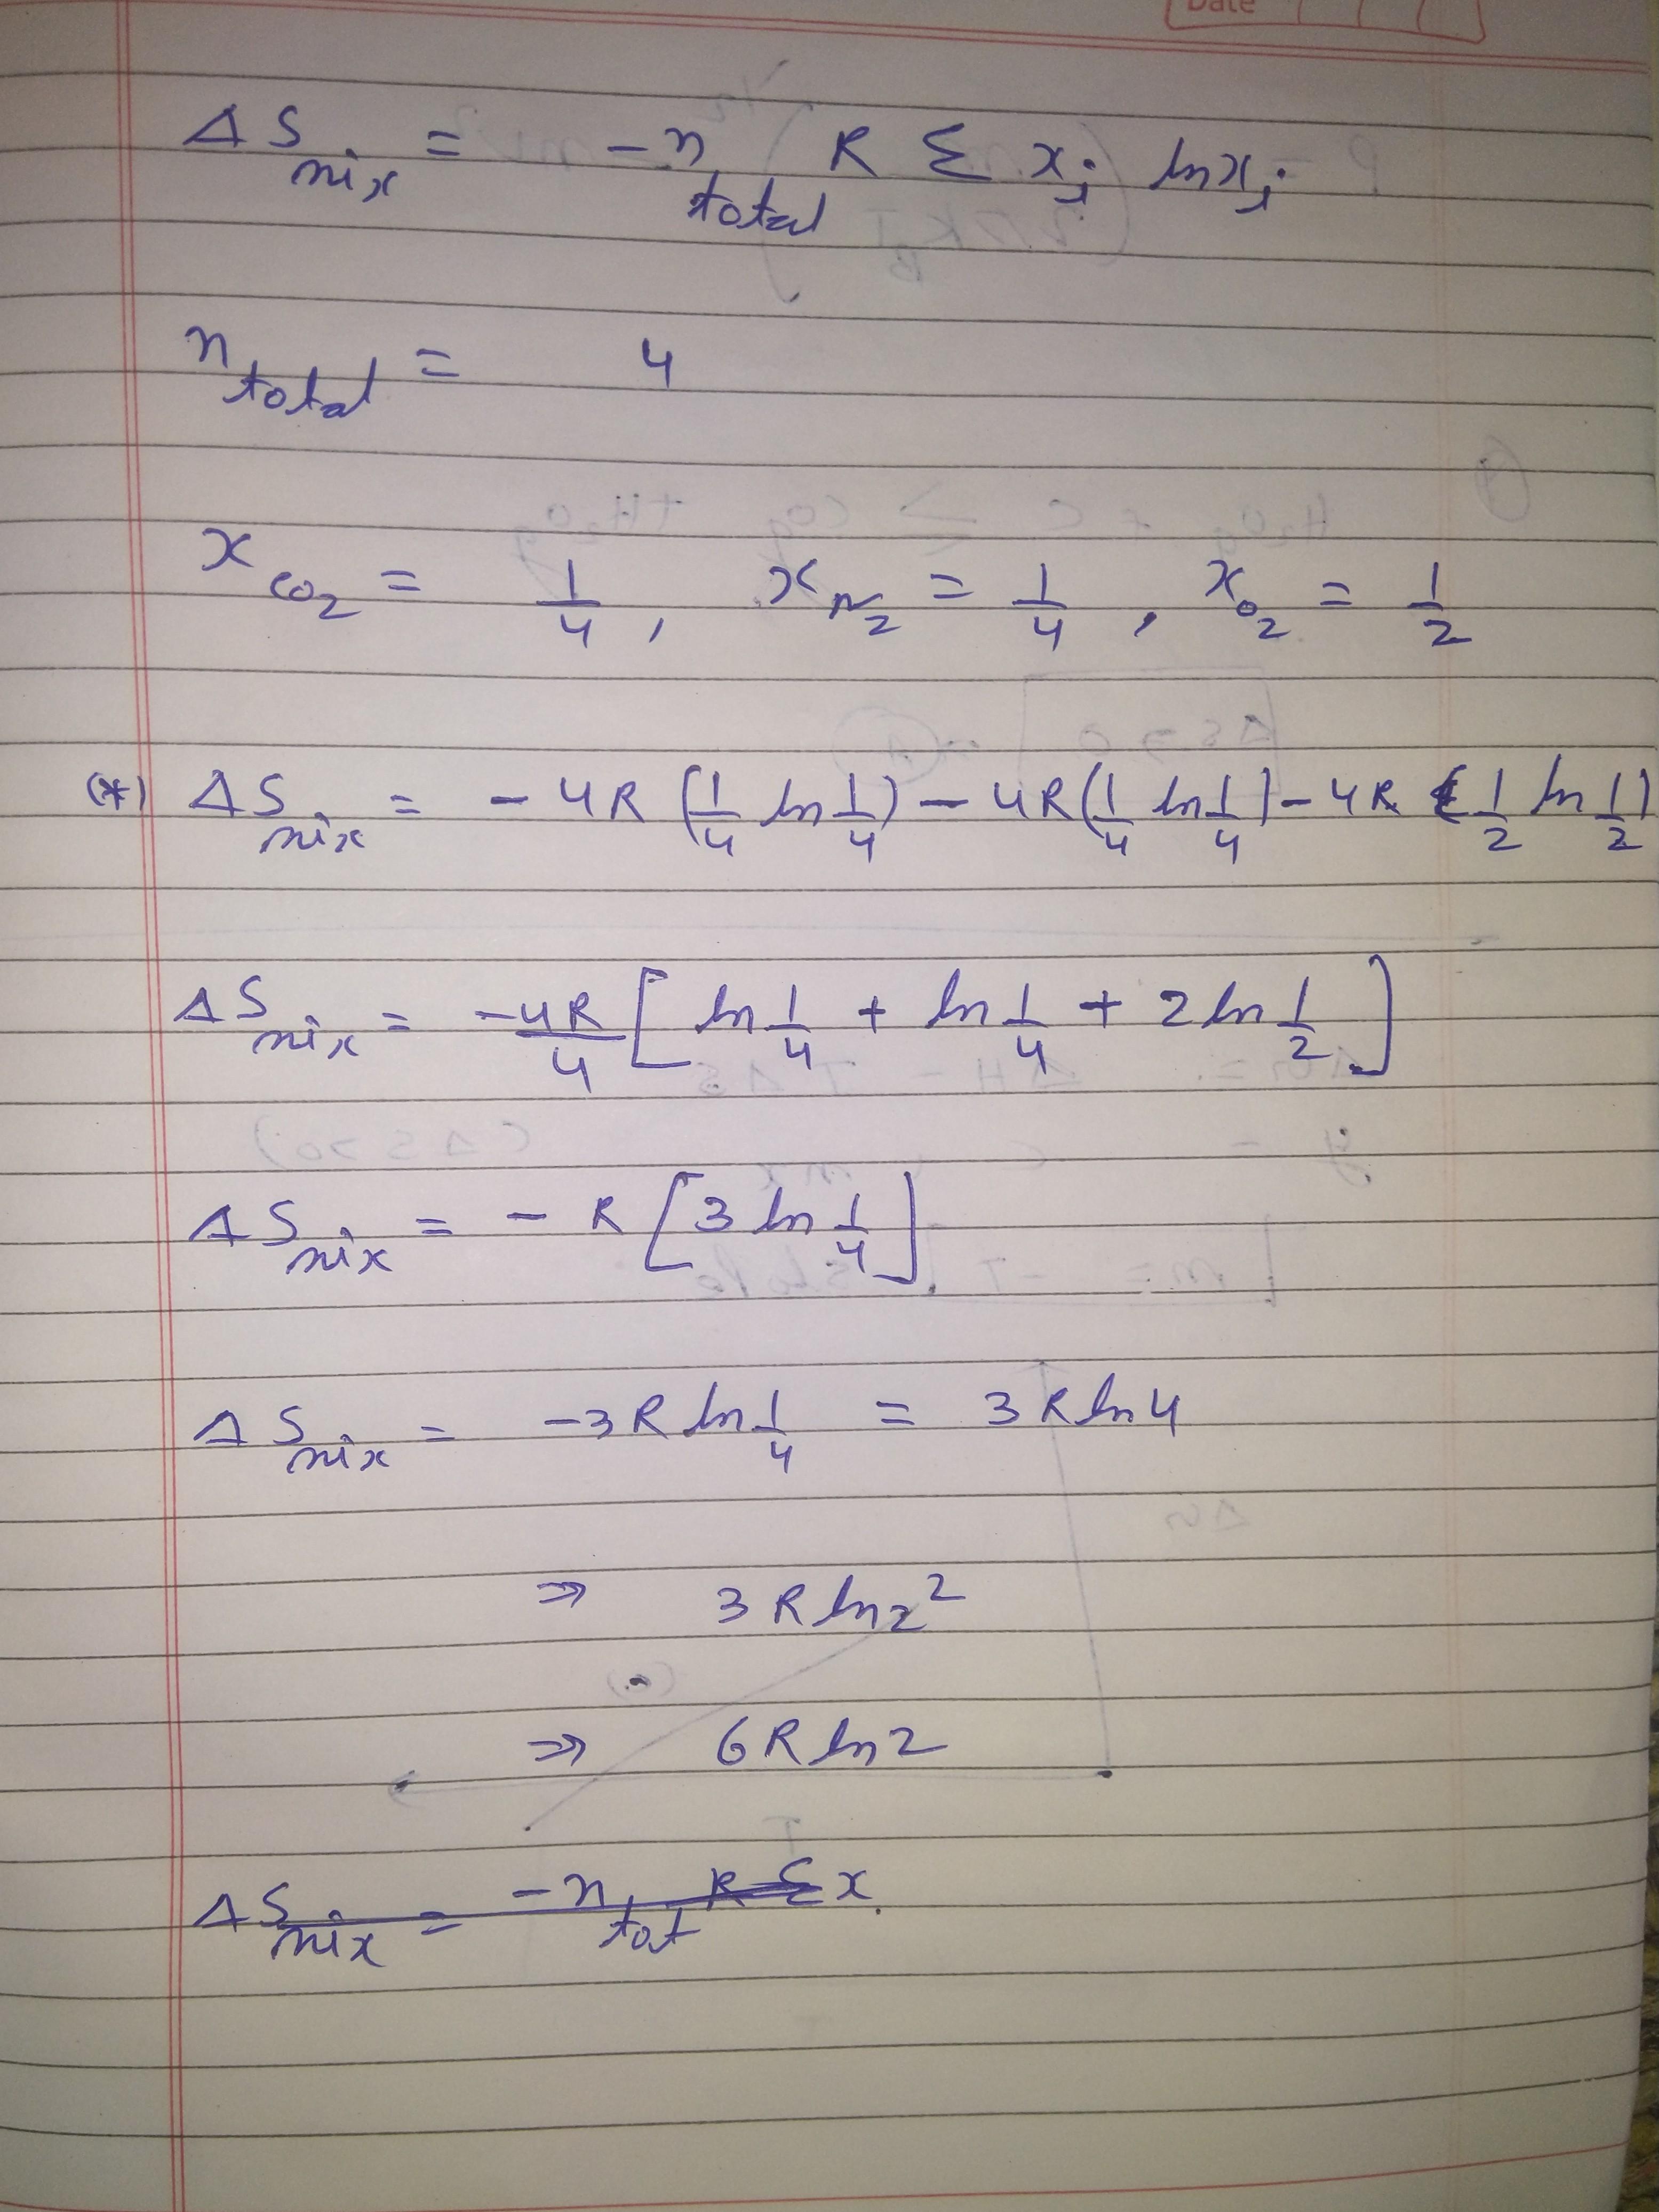 Date
ΔS_mix = -n_total R Σ x_i ln x_i
n_total = 4
x_CO2 = 1/4, x_N2 = 1/4, x_O2 = 1/2
(*) ΔS_mix = -4R (1/4 ln 1/4) - 4R (1/4 ln 1/4) - 4R (1/2 ln 1/2)
ΔS_mix = -4R/4 [ ln 1/4 + ln 1/4 + 2 ln 1/2 ]
ΔS_mix = - R [ 3 ln 1/4 ]
ΔS_mix = -3R ln 1/4 = 3R ln 4
⇒ 3R ln 2²
⇒ 6R ln 2
ΔS_mix = -n_tot R Σ x